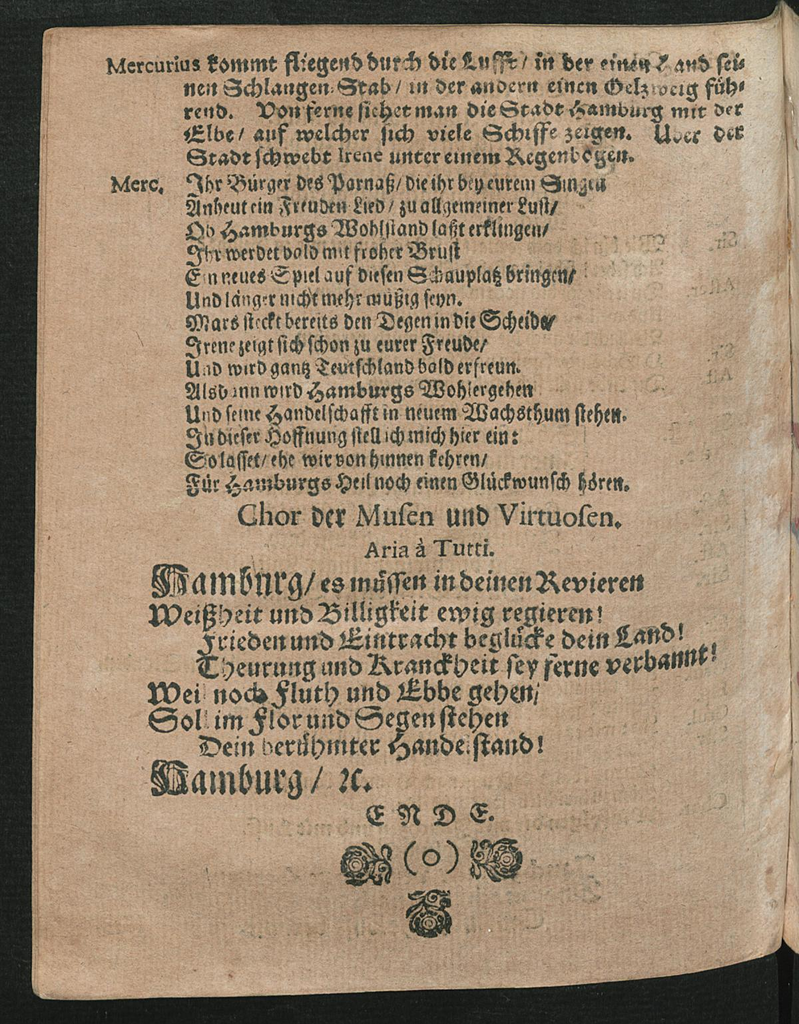 Mercurius kommt fliegend durch die Lufft/ in der einen Hand sei-
nen Schlangen-Stab/ in der andern einen Oelzweig füh-
rend. Von ferne siehet man die Stadt Hamburg mit der
Elbe/ auf welcher sich viele Schiffe zeigen. Uber der
Stadt schwebt Irene unter einem Regenbogen.
Merc. Ihr Bürger des Parnaß/ die ihr bey eurem Singen
Anheut ein Freuden-Lied/ zu allgemeiner Lust/
Ob Hamburgs Wohlstand laßt erklingen/
Ihr werdet bald mit froher Brust
Ein neues Spiel auf diesen Schauplatz bringen/
Und länger nicht mehr müßig seyn.
Mars steckt bereits den Degen in die Scheide/
Irene zeigt sich schon zu eurer Freude/
Und wird gantz Teutschland bald erfreun.
Alsdann wird Hamburgs Wohlergehen
Und seine Handelschafft in neuem Wachsthum stehen.
In dieser Hoffnung stell ich mich hier ein:
So lasset/ ehe wir von hinnen kehren/
Für Hamburgs Heil noch einen Glückwunsch hören.
Chor der Musen und Virtuosen.
Aria à Tutti.
Hamburg/ es müssen in deinen Revieren
Weißheit und Billigkeit ewig regieren!
Frieden und Eintracht beglücke dein Land!
Theurung und Kranckheit sey ferne verbannt!
Weil noch Fluth und Ebbe gehen/
Soll im Flor und Segen stehen
Dein berühmter Handelstand!
Hamburg/ ꝛc.
ENDE.
(o)